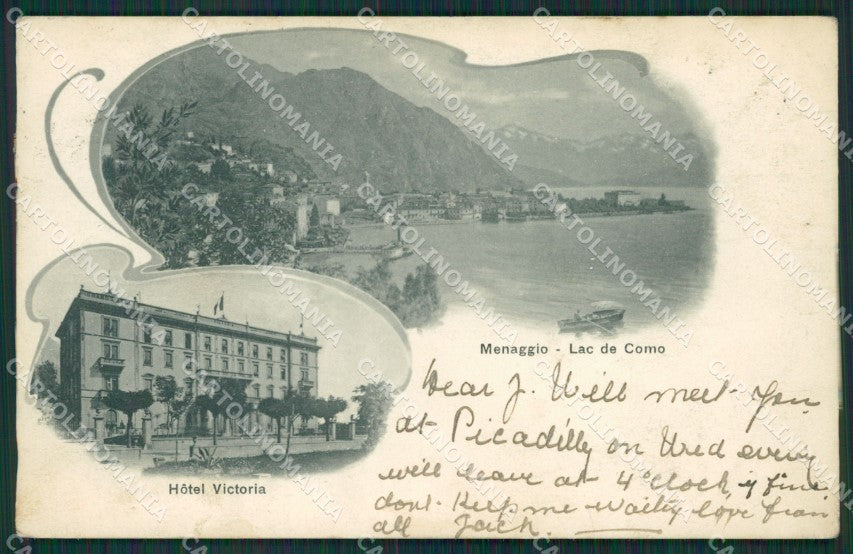 Menaggio - Lac de Como
Hôtel Victoria
Dear J. Will meet you
at Picadilly on Wed evening
will leave at 4 o'clock if fine.
dont keep me waiting love from
all Jack.
CARTOLINOMANIA